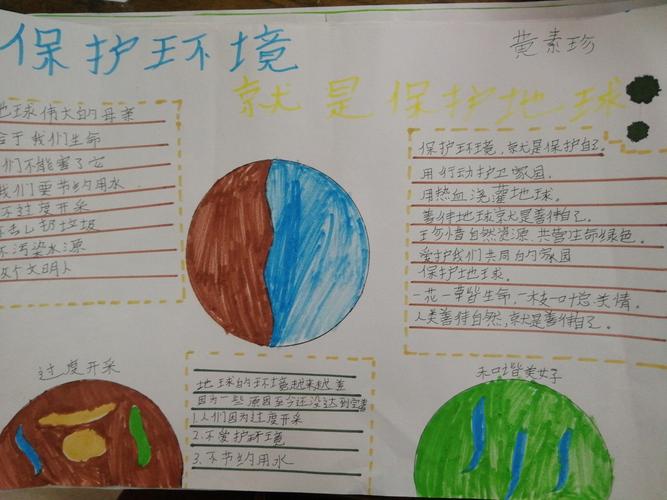 保护环境
黄素珍
就是保护地球
地球伟大的母亲
给于我们生命
们不能害了它
我们要节约用水
不过度开采
不乱扔垃圾
不污染水源
做个文明人
保护环境,就是保护自己。
用行动护卫家园。
用热血浇灌地球。
善待地球就是善待自己。
珍惜自然资源,共营生命绿色。
爱护我们共同的家园
保护地球。
一花一草皆生命,一枝一叶总关情。
人类善待自然,就是善待自己。
过度开采
地球的环境越来越差
因为一些原因至今还没达到完善
1.人们因为过度开采
2.不爱护环境
3.不节约用水
和谐美好